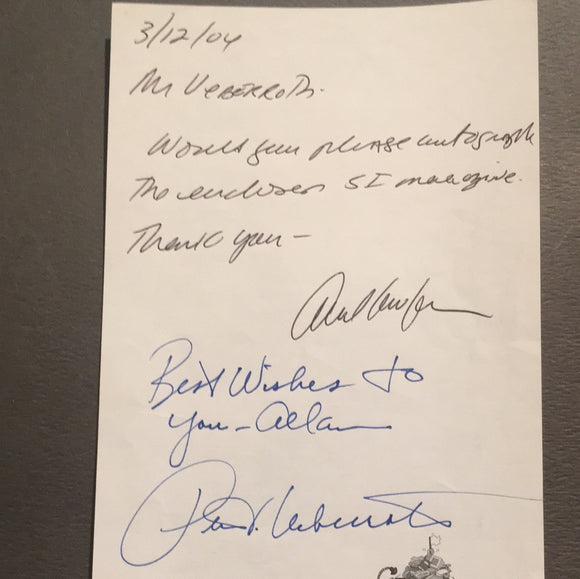 3/12/04
Mr Ueberroth.
Would you please autograph
the enclosed SI magazine.
Thank you –
Best Wishes to
you – Allan
Peter V. Ueberroth